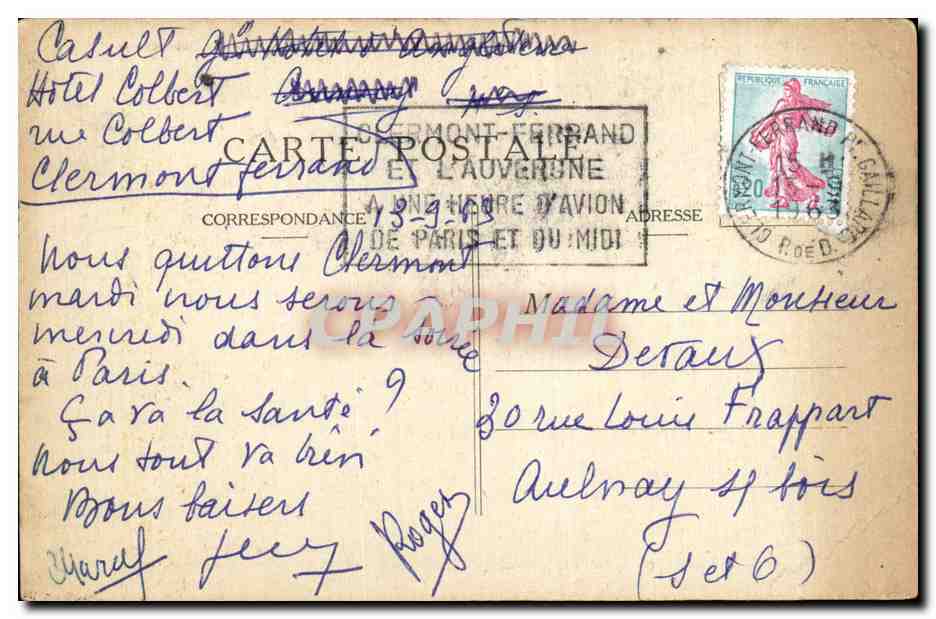 Casult
Hôtel Colbert
rue Colbert
Clermont ferrand
CARTE POSTALE
CORRESPONDANCE
ADRESSE
13-9-63
CLERMONT-FERRAND
ET L'AUVERGNE
A UNE HEURE D'AVION
DE PARIS ET DU MIDI
REPUBLIQUE FRANÇAISE
CLERMONT-FERRAND Pl. GAILLARD
1963
P. DE D.
Nous quittons Clermont
mardi nous serons
mercredi dans la soirée
à Paris.
Ça va la santé ?
Nous tout va bien
Bons baisers
Marcel Roger
Madame et Monsieur
Detaux
30 rue Louis Frappart
Aulnay s/ bois
(S et O)
CPAPHIL